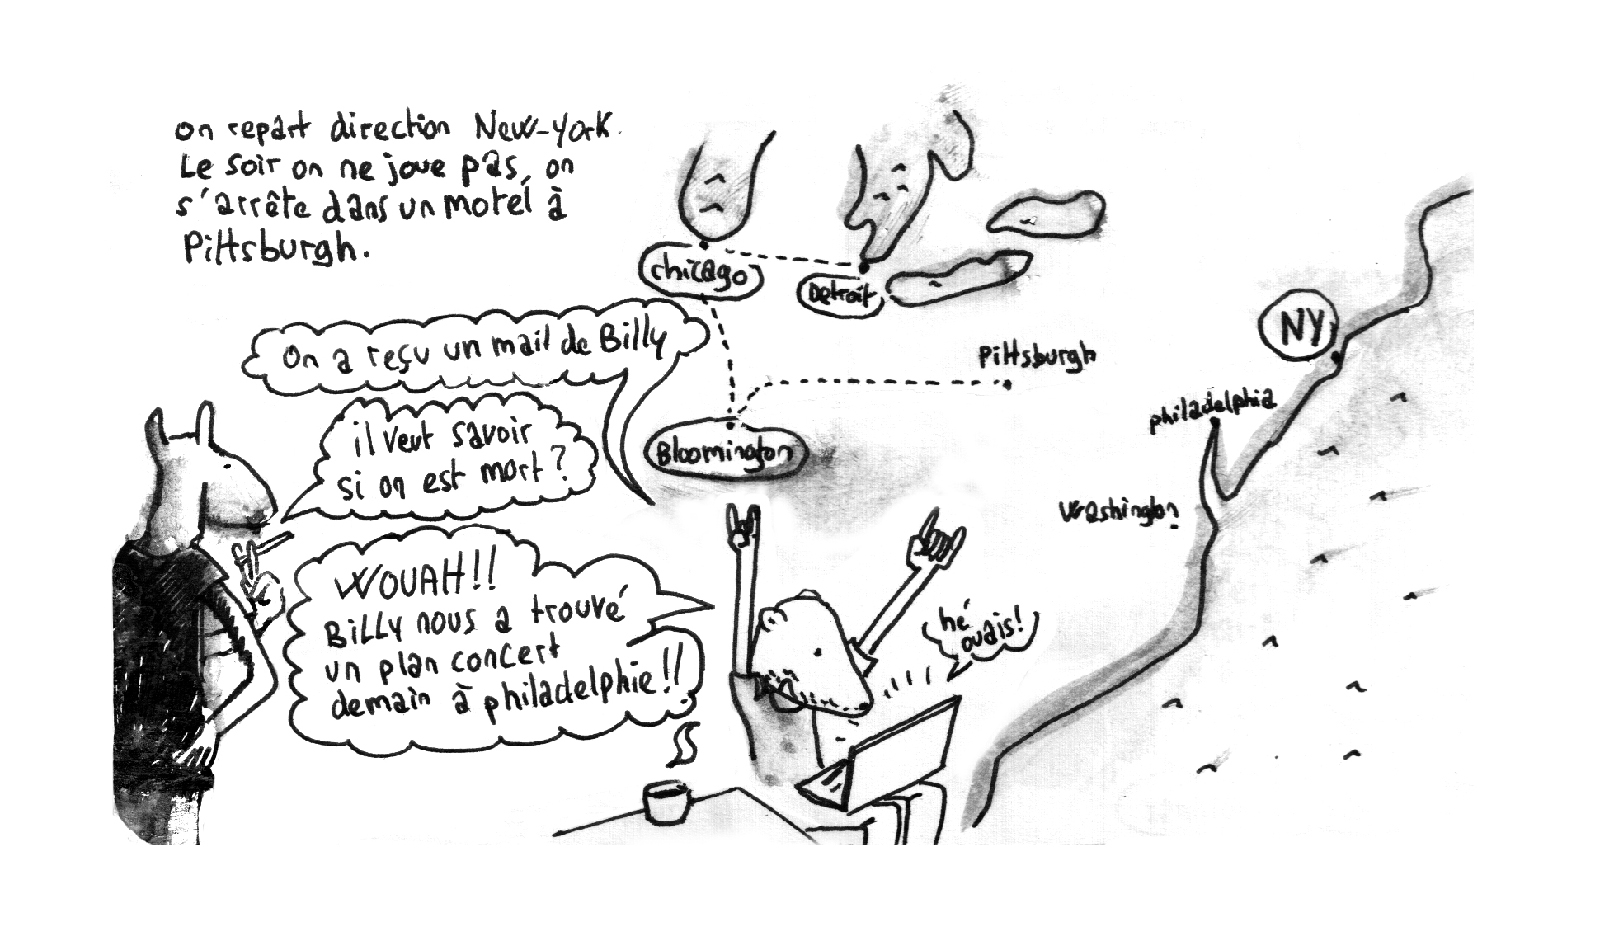 on repart direction New-York.
Le soir on ne joue pas, on
s'arrête dans un motel à
Pittsburgh.
chicago
Detroit
On a reçu un mail de Billy
NY
Pittsburgh
philadelphia
il veut savoir
si on est mort ?
Bloomington
Washington
WOUAH!!
BiLLY nous a trouvé
un plan concert
demain à philadelphie !!
hé
ouais!